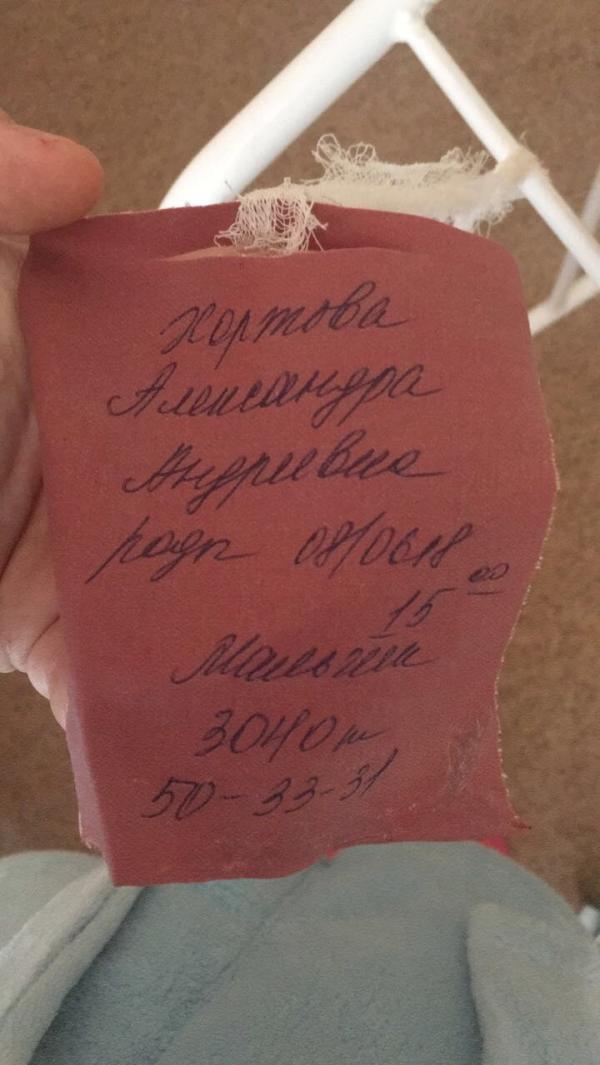 Хортова
Александра
Андреевна
родп 08/06 18
15 00
Мальчик
3040 г
50-33-31